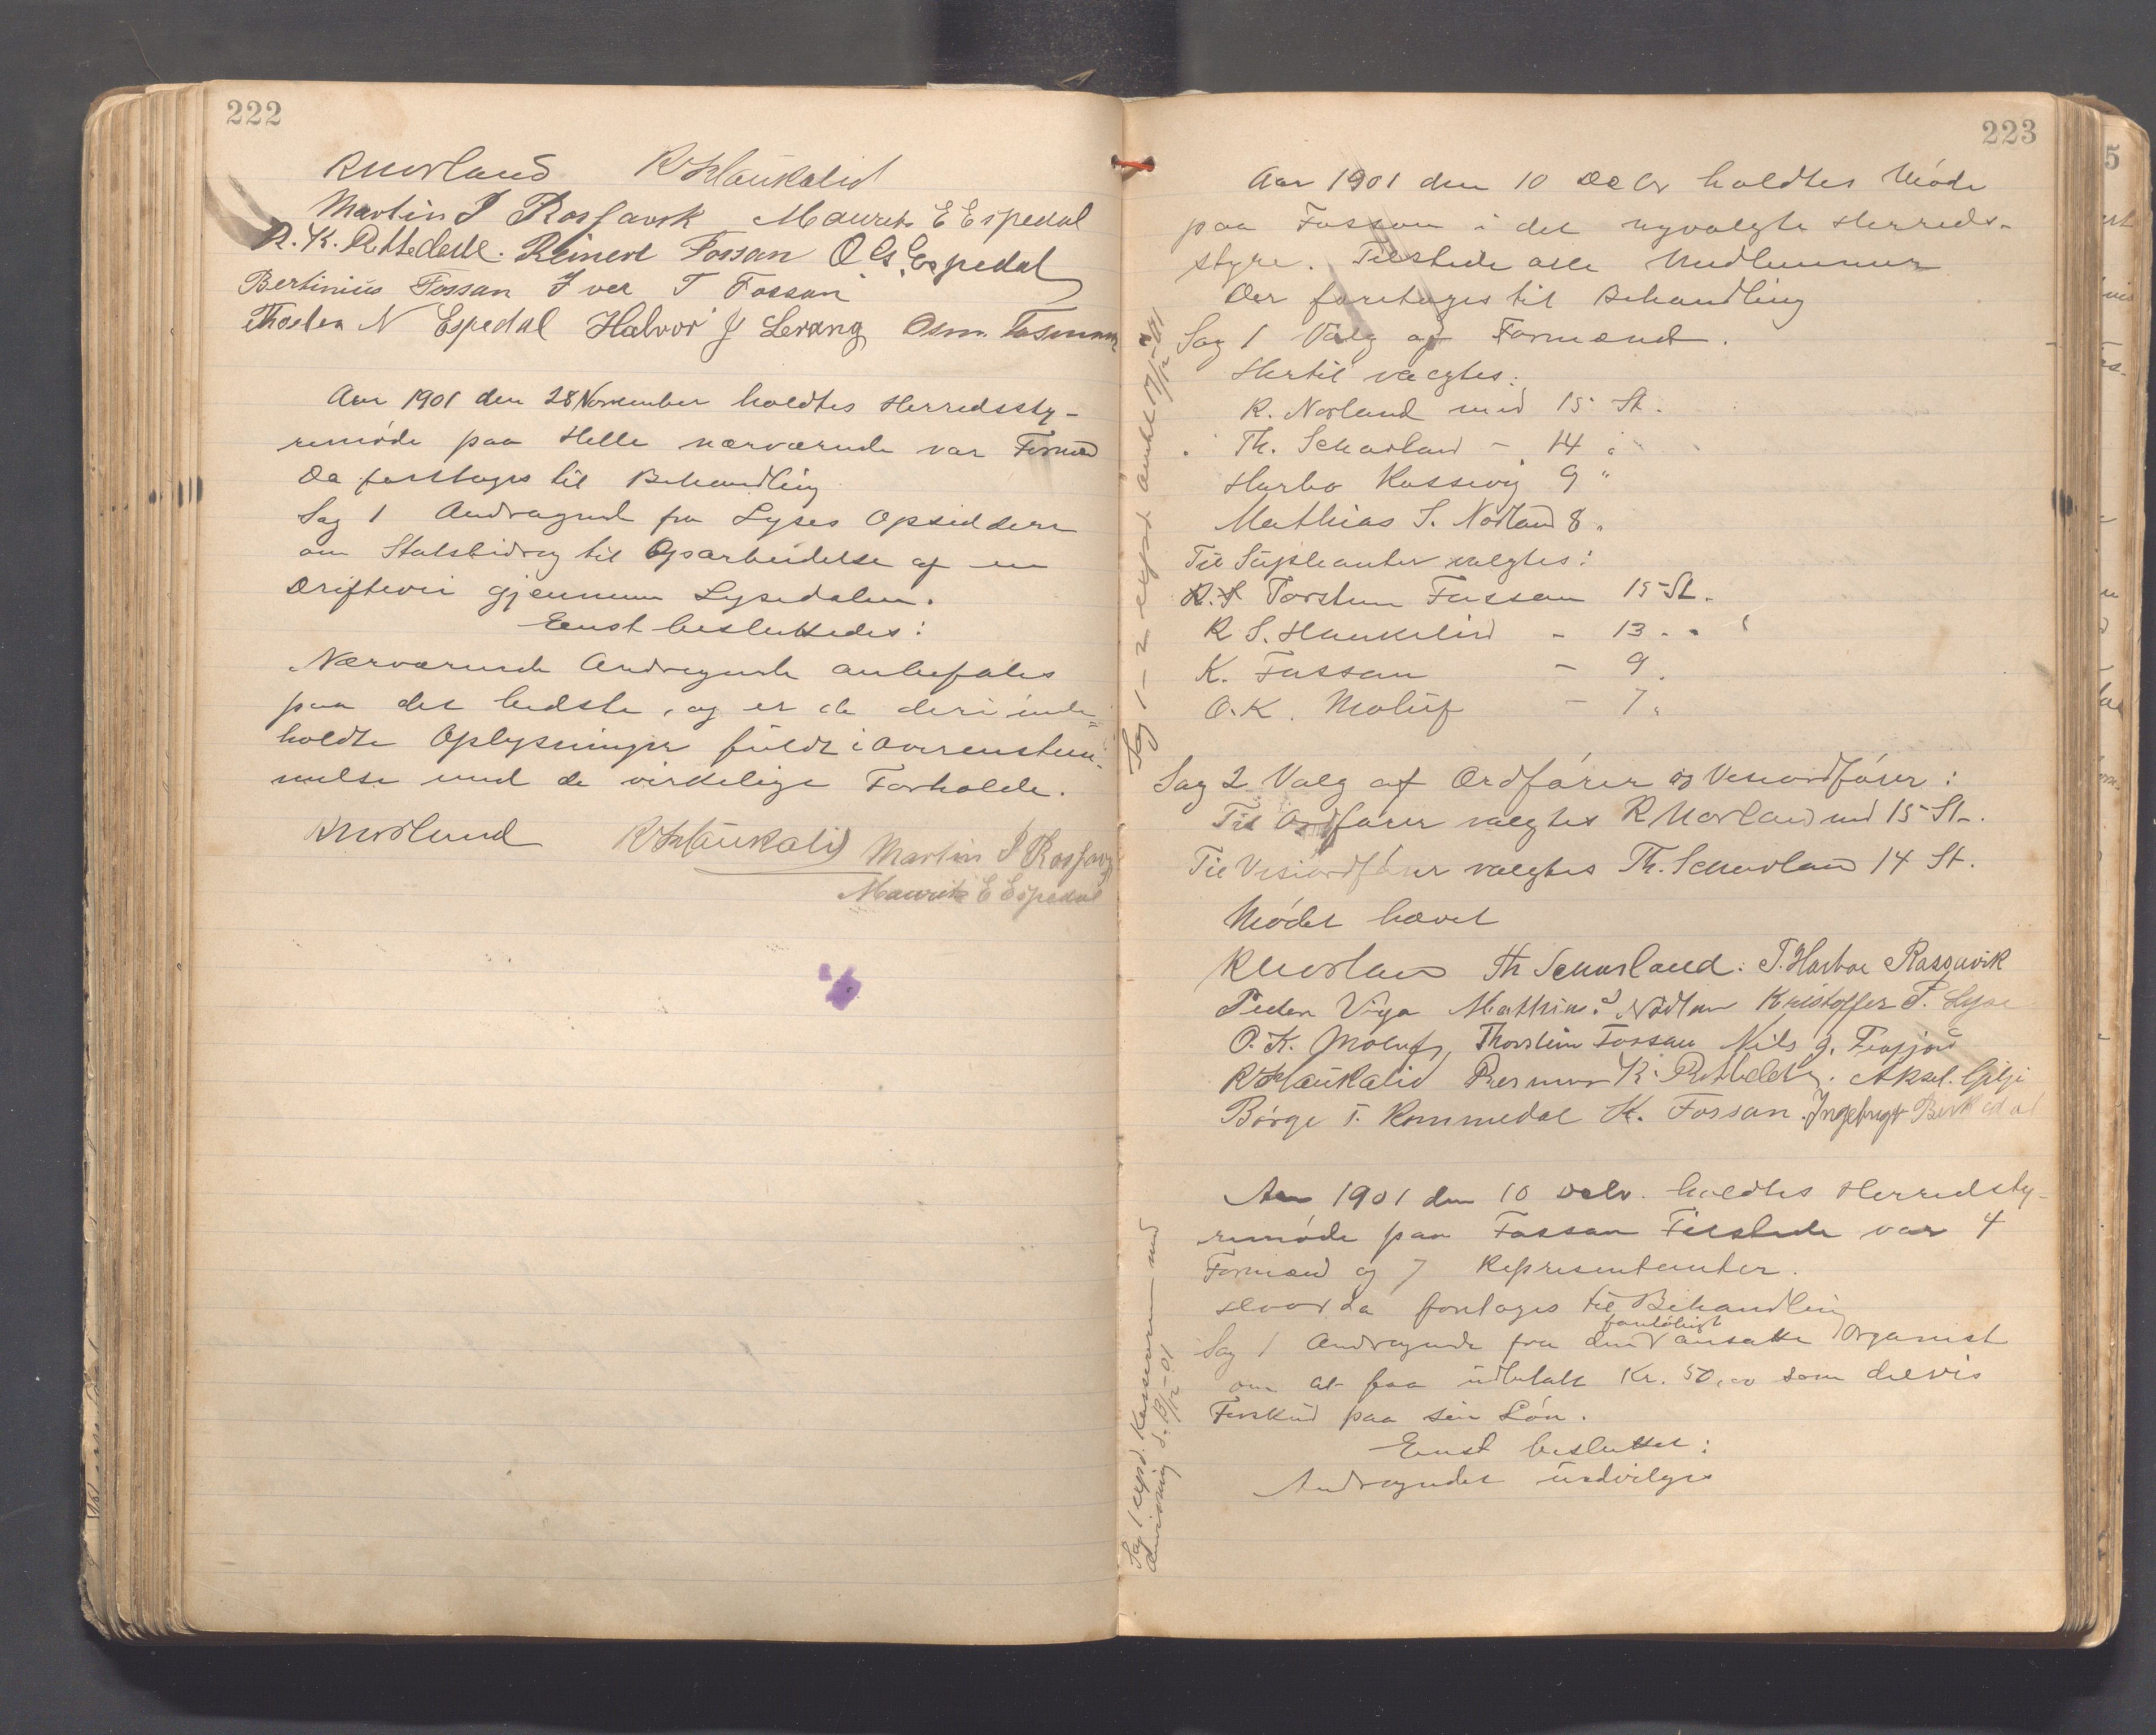 222
RNorland RSHaukalid
Martin I Rosfavik Maurits E Espedal
R. K. Rettedal. Reinert Fossan O Gs. Espedal
Bertinius Fossan Iver T Fossan
Thosten N Espedal Halvor J Levang Osm.
Aar 1901 den 28 November holdtes Herredssty-
remøde paa Helle nærværende var Formænd
Da foretoges til Behandling
Sag 1 Andragende fra Lyses Opsiddere
om Statsbidrag til Oparbeidelse af en
Driftevei gjennem Lysedalen.
Eenst besluttedes:
Nærværende Andragende anbefales
paa det bedste, og er de deri inde=
holdte Oplysninger fuldt i Overenstem-
melse med de virkelige Forholde.
RNorland RSHaukalid Martin I Rosfavik
Maurits E Espedal
223
Aar 1901 den 10 Decbr holdtes Møde
paa Fossan i det nyvalgte Herreds-
styre. Tilstede alle Medlemmer
Der foretoges til Behandling
Sag 1 Valg af Formænd.
Hertil valgtes:
R. Norland med 15 St.
Th. Scharland - 14 "
Harbo Rassevig 9 "
Mathias S. Nordland 8 "
Til Supleanter valgtes:
Torsten Fossan 15 St.
R S. Haukelid - 13 "
K. Fossan - 9 "
O. K. Moluf - 7 "
Sag 1 - 2 exped
Sag 2 Valg af Ordfører og Viseordfører:
Til Ordfører valgtes R Norland med 15 St.
Til Viseordfører valgtes Th. Scharland 14 St.
Mødet hævet
RNorland Th Scharland. T. Harboe Rassavik
Peder Viga Mathias S Nordland Kristoffer P. Lyse
O. K. Moluf, Thorstein Fossan Nils G.
RSHaukalid Rasmus K. Rettedal. Aksel. Gilje
Børge T. Rommedal K. Fossan. Ingebrigt Birkedal
Aar 1901 den 10 Decbr. holdtes Herredssty-
remøde paa Fossan Tilstede var 4
Formænd og 7 Representanter.
Hvor da foretoges til Behandling
Sag 1 Andragende fra den foreløbigt ansatte Organist
om at faa udbetalt Kr. 50,00 som delvis
Forskud paa sin Løn.
Eenst besluttet:
Andragendet indvilges
Sag 1 exped. Kassereren med
Anvisning d. 13/12-01